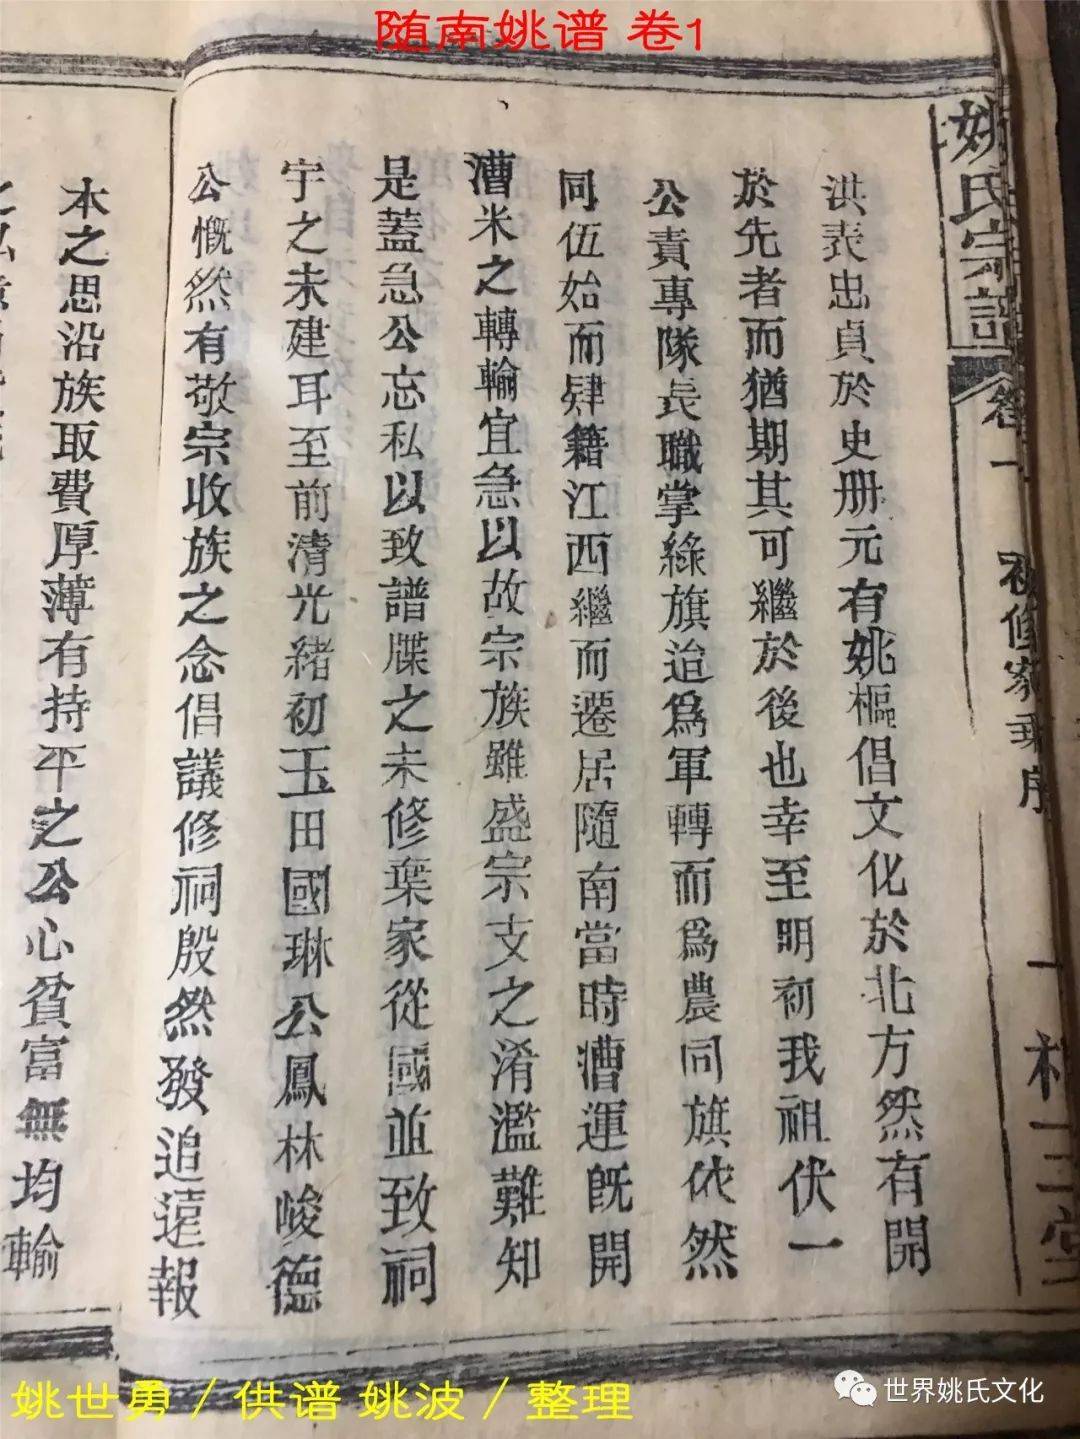 随南姚谱 卷1
姚氏宗譜
卷一 初修家乘序 一
洪表忠貞於史册元有姚樞倡文化於北方然有開
於先者而猶期其可繼於後也幸至明初我祖伏一
公責專隊長職掌綠旗迨爲軍轉而爲農同旗依然
同伍始而肆籍江西繼而遷居隨南當時漕運旣開
漕米之轉輸宜急以故宗族雖盛宗支之淆濫難知
是蓋急公忘私以致譜牒之未修葉家從國並致祠
宇之未建耳至前清光緒初玉田國琳公鳳林峻德
公慨然有敬宗收族之念倡議修祠殷然發追遠報
本之思沿族取費厚薄有持平之公心貧富無均輸
姚世勇／供谱 姚波／整理
世界姚氏文化